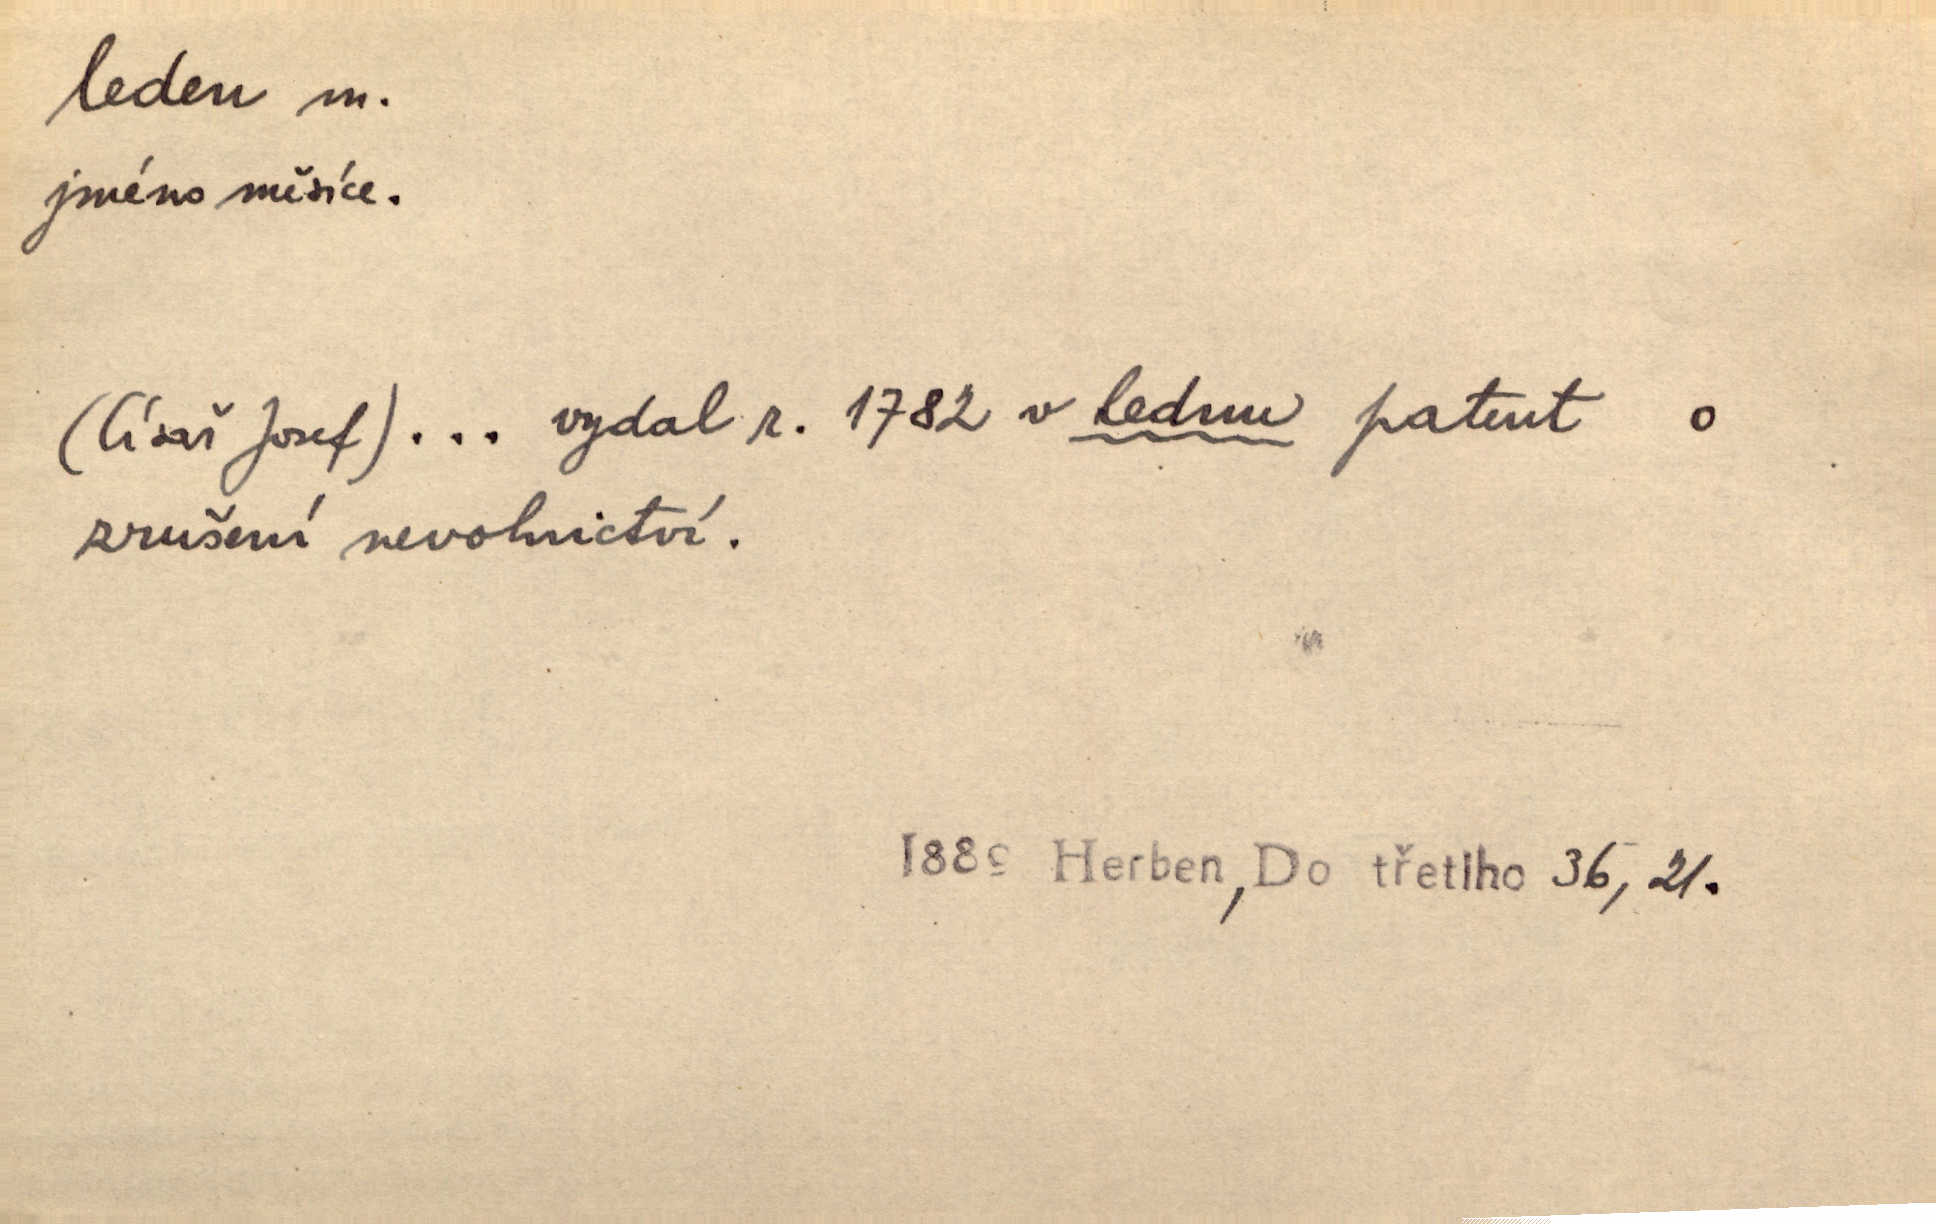 leden m.
jméno měsíce.
(Císař Josef)... vydal r. 1782 v lednu patent o
zrušení nevolnictví.
1889 Herben, Do třetiho 36, 21.